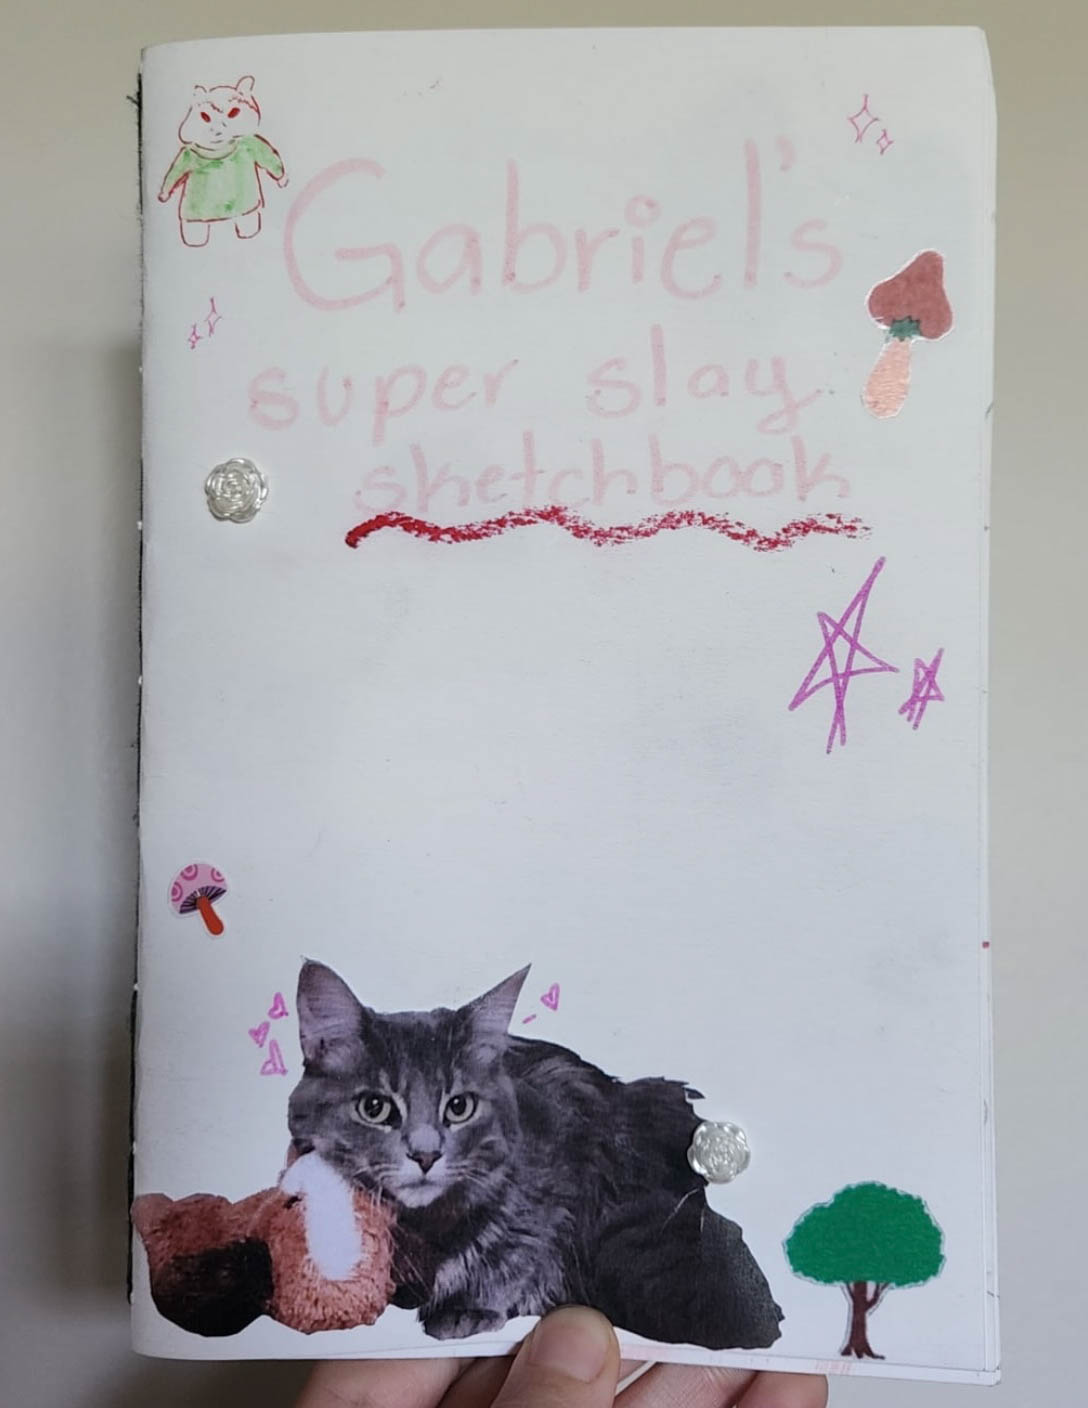 Gabriel's
super slay
sketchbook